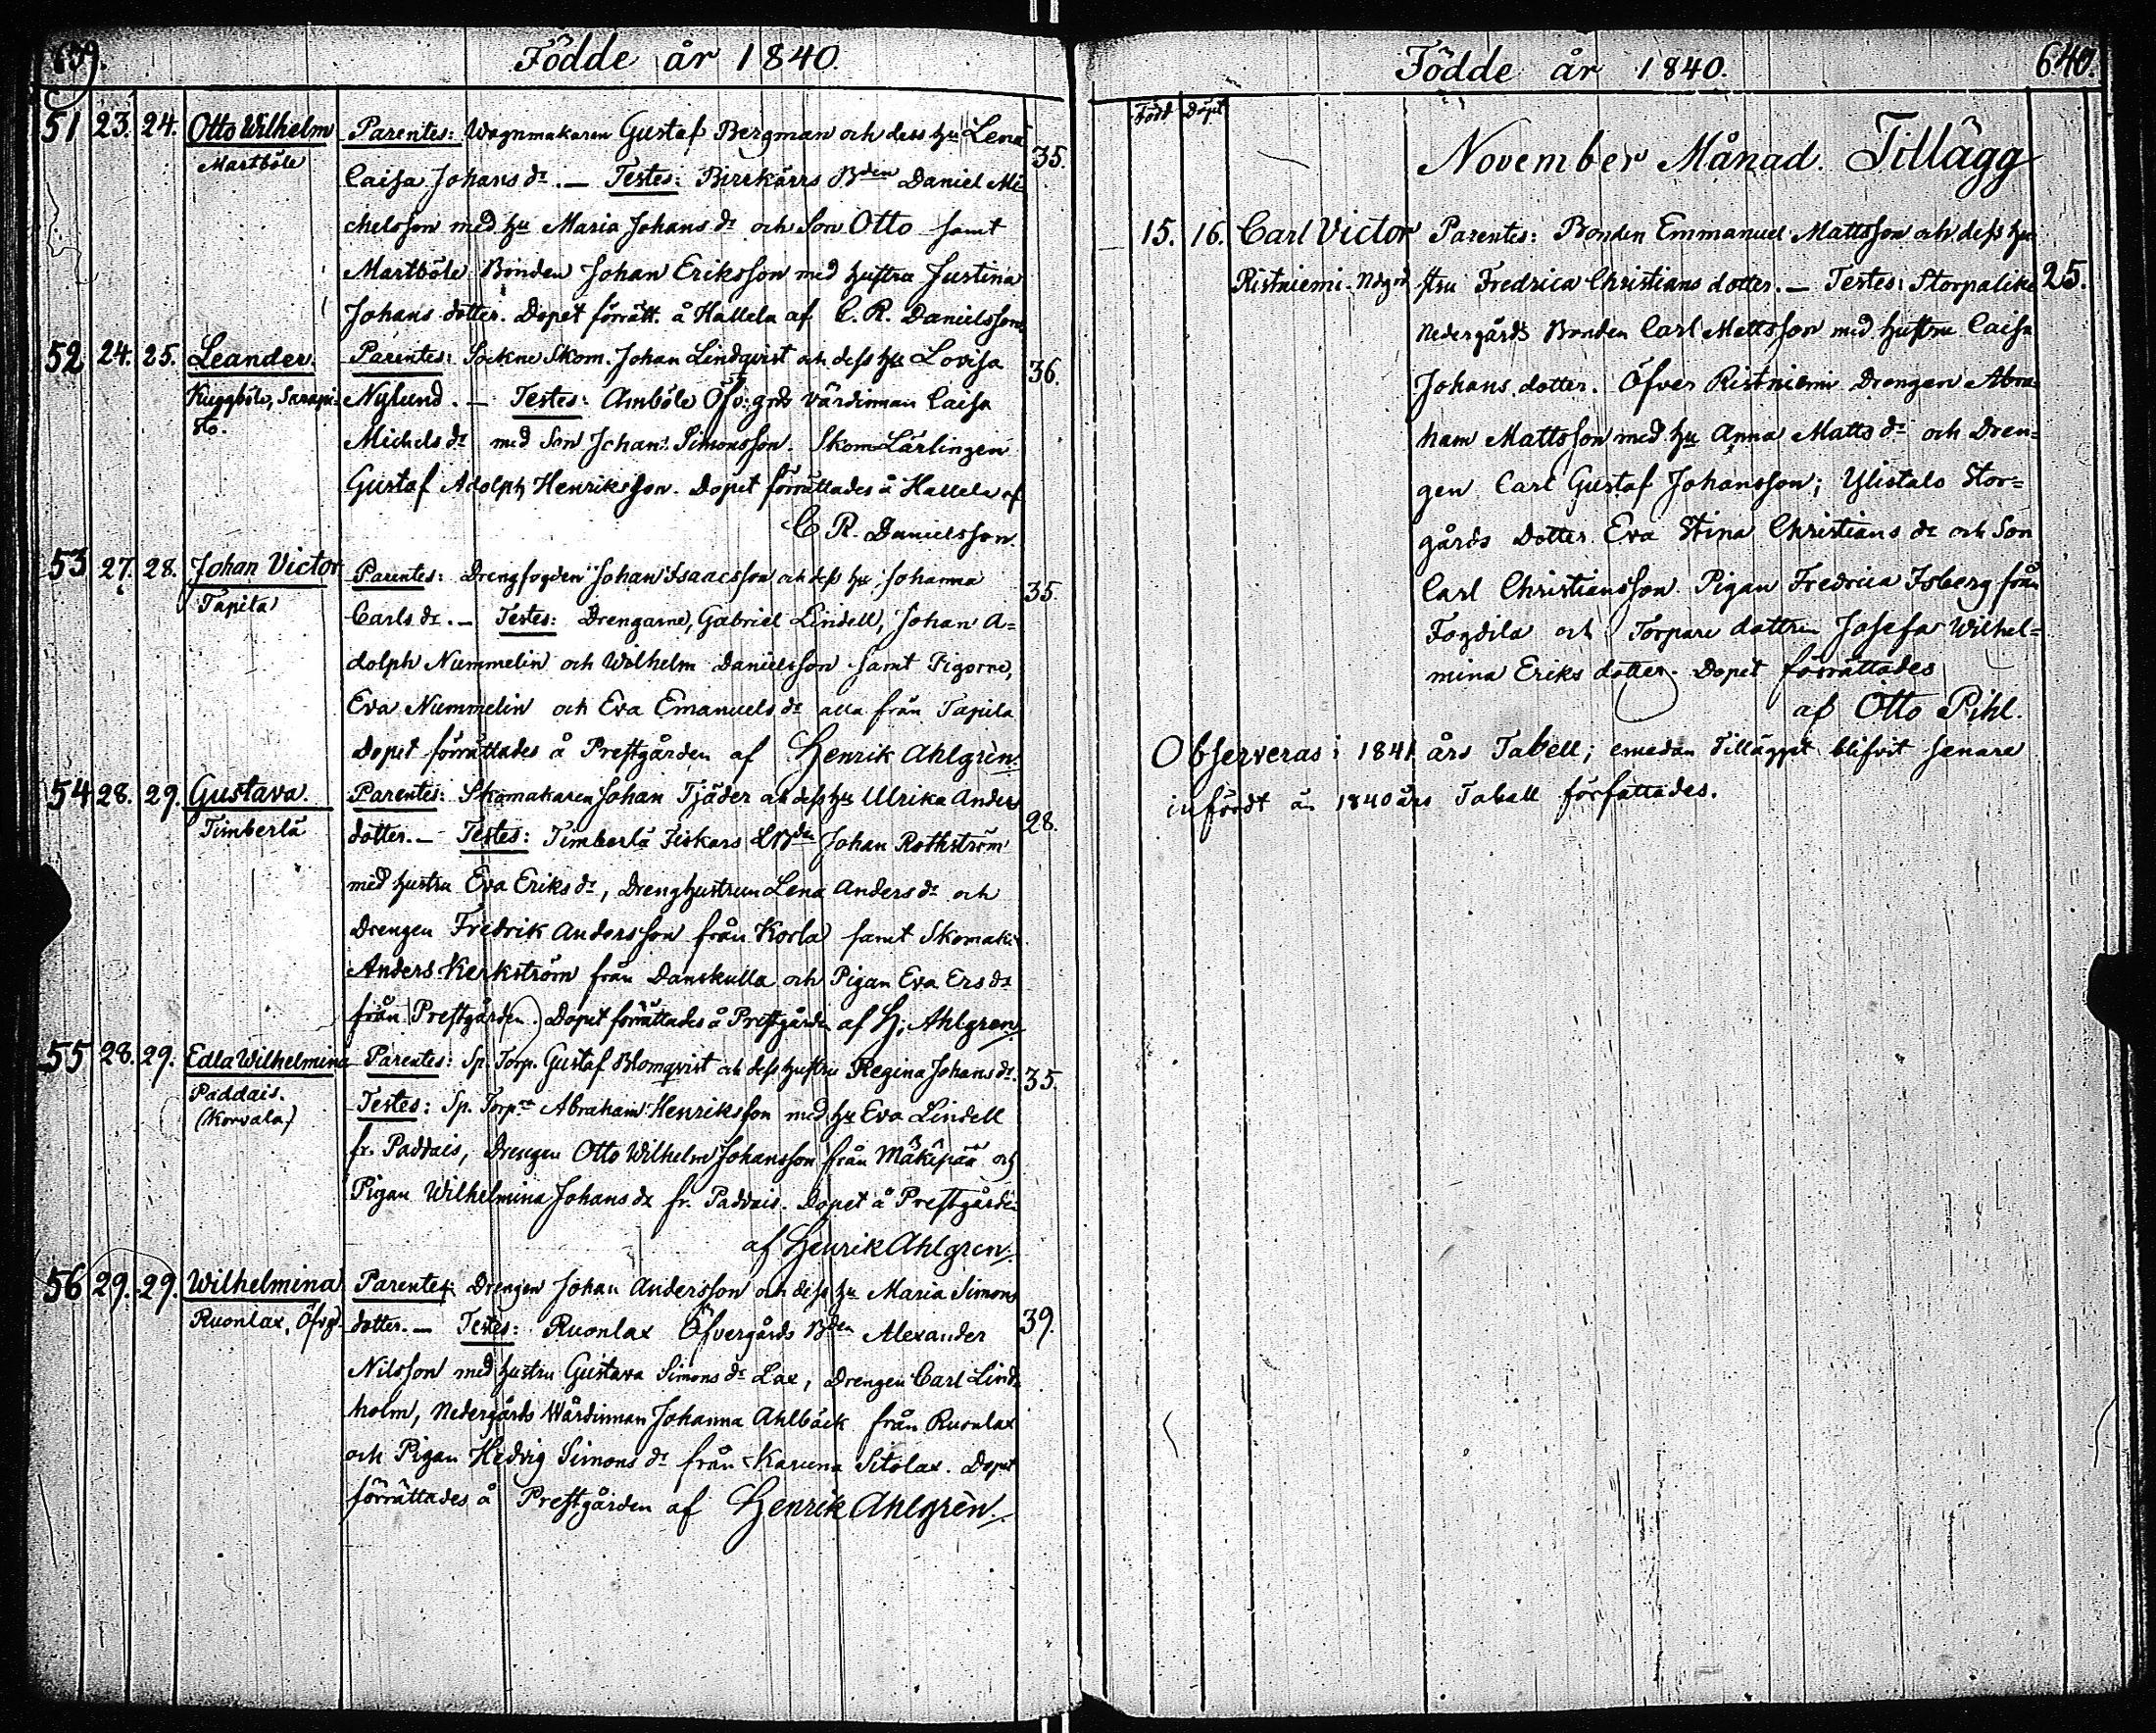 639.
Födde år 1840.
51 23. 24. Otto Wilhelm Parentes: Wagnmakaren Gustaf Bergman och dess hu Lena
Martböle Caisa Johans dr. — Testes: Birrkärrs Bden Daniel Mi- 35.
chelsson med hu Maria Johans dr och Son Otto samt
Martböle Bonden Johan Eriksson med hustru Justina
Johans dotter. Dopet förrätt. å Hallela af C. R. Danielsson.
52 24. 25. Leander. Parentes: Sockne Skom. Johan Lindqvist och dess hu Lovisa
Kuggböle, Sarapi- Nylund. — Testes: Amböle Öfv: grds Värdinnan Caisa 36.
sto. Michels dr med Son Johan Simonsson. Skom Lärlingen
Gustaf Adolph Henriksson. Dopet förrättades å Hallela af
C R. Danielsson.
53 27. 28. Johan Victor Parentes: Drengfogden Johan Isaacsson och dess hu Johanna
Tapila Carls dr. — Testes: Drengarne, Gabriel Lindell, Johan A= 35.
dolph Nummelin och Wilhelm Danielsson samt Pigorne,
Eva Nummelin och Eva Emanuels dr alla från Tapila
Dopet förrättades å Prestgården af Henrik Ahlgrèn.
54 28. 29. Gustava. Parentes: Skomakaren Johan Tjäder och dess hu Ulrika Anders
Timberlä dotter. — Testes: Timberlä Fiskars LBden Johan Rothström 28.
med hustru Eva Eriks dr, Drenghustrun Lena Anders dr och
Drengen Fredrik Andersson från Korla samt Skomak:
Anders Kerkström från Danskulla och Pigan Eva Ers dr
från Prestgården. Dopet förrättades å Prestgården af H. Ahlgren.
55 28. 29. Edla Wilhelmina Parentes: Sp. Torp. Gustaf Blomqvist och dess hustru Regina Johans dr.
Paddais. Testes: Sp. Torpn Abraham Henriksson med hu Eva Lindell 35.
(Korvala) fr. Paddais, Drengen Otto Wilhelm Johansson från Mäkipää och
Pigan Wilhelmina Johans dr fr. Paddais. Dopet å Prestgården
af Henrik Ahlgren.
56 29. 29. Wilhelmina Parentes: Drengen Johan Andersson och dess hu Maria Simons
Ruonlax, Öfvgd. dotter. — Testes: Ruonlax Öfvergårds Bden Alexander 39.
Nilsson med hustru Gustava Simons dr Lax, Drengen Carl Lind-
holm, Nedergårds Wärdinnan Johanna Ahlbäck från Ruonlax
och Pigan Hedvig Simons dr från Karuna Sitolax. Dopet
förrättades å Prestgården af Henrik Ahlgrèn.
Födde år 1840. 640.
Född Döpt
November Månad. Tillägg
15. 16. Carl Victor Parentes: Bonden Emmanuel Mattsson och dess hu-
Ristniemi. Ndgrd stru Fredrica Christians dotter. — Testes: Storpalike 25.
Nedergårds Bonden Carl Mattsson med hustru Caisa
Johans dotter. Öfver Ristniemi Drengen Abra-
ham Mattsson med hu Anna Matts dr och Dren=
gen Carl Gustaf Johansson; Ylistalo Stor=
gårds Dotter Eva Stina Christians dr och Son
Carl Christiansson. Pigan Fredrica Isberg från
Fogdila och Torpare dottren Josefa Wilhel=
mina Eriks dotter. Dopet förrättades
af Otto Pihl.
Observeras i 1841 års Tabell; emedan Tillägget blifvit senare
infördt än 1840 års Tabell författades.